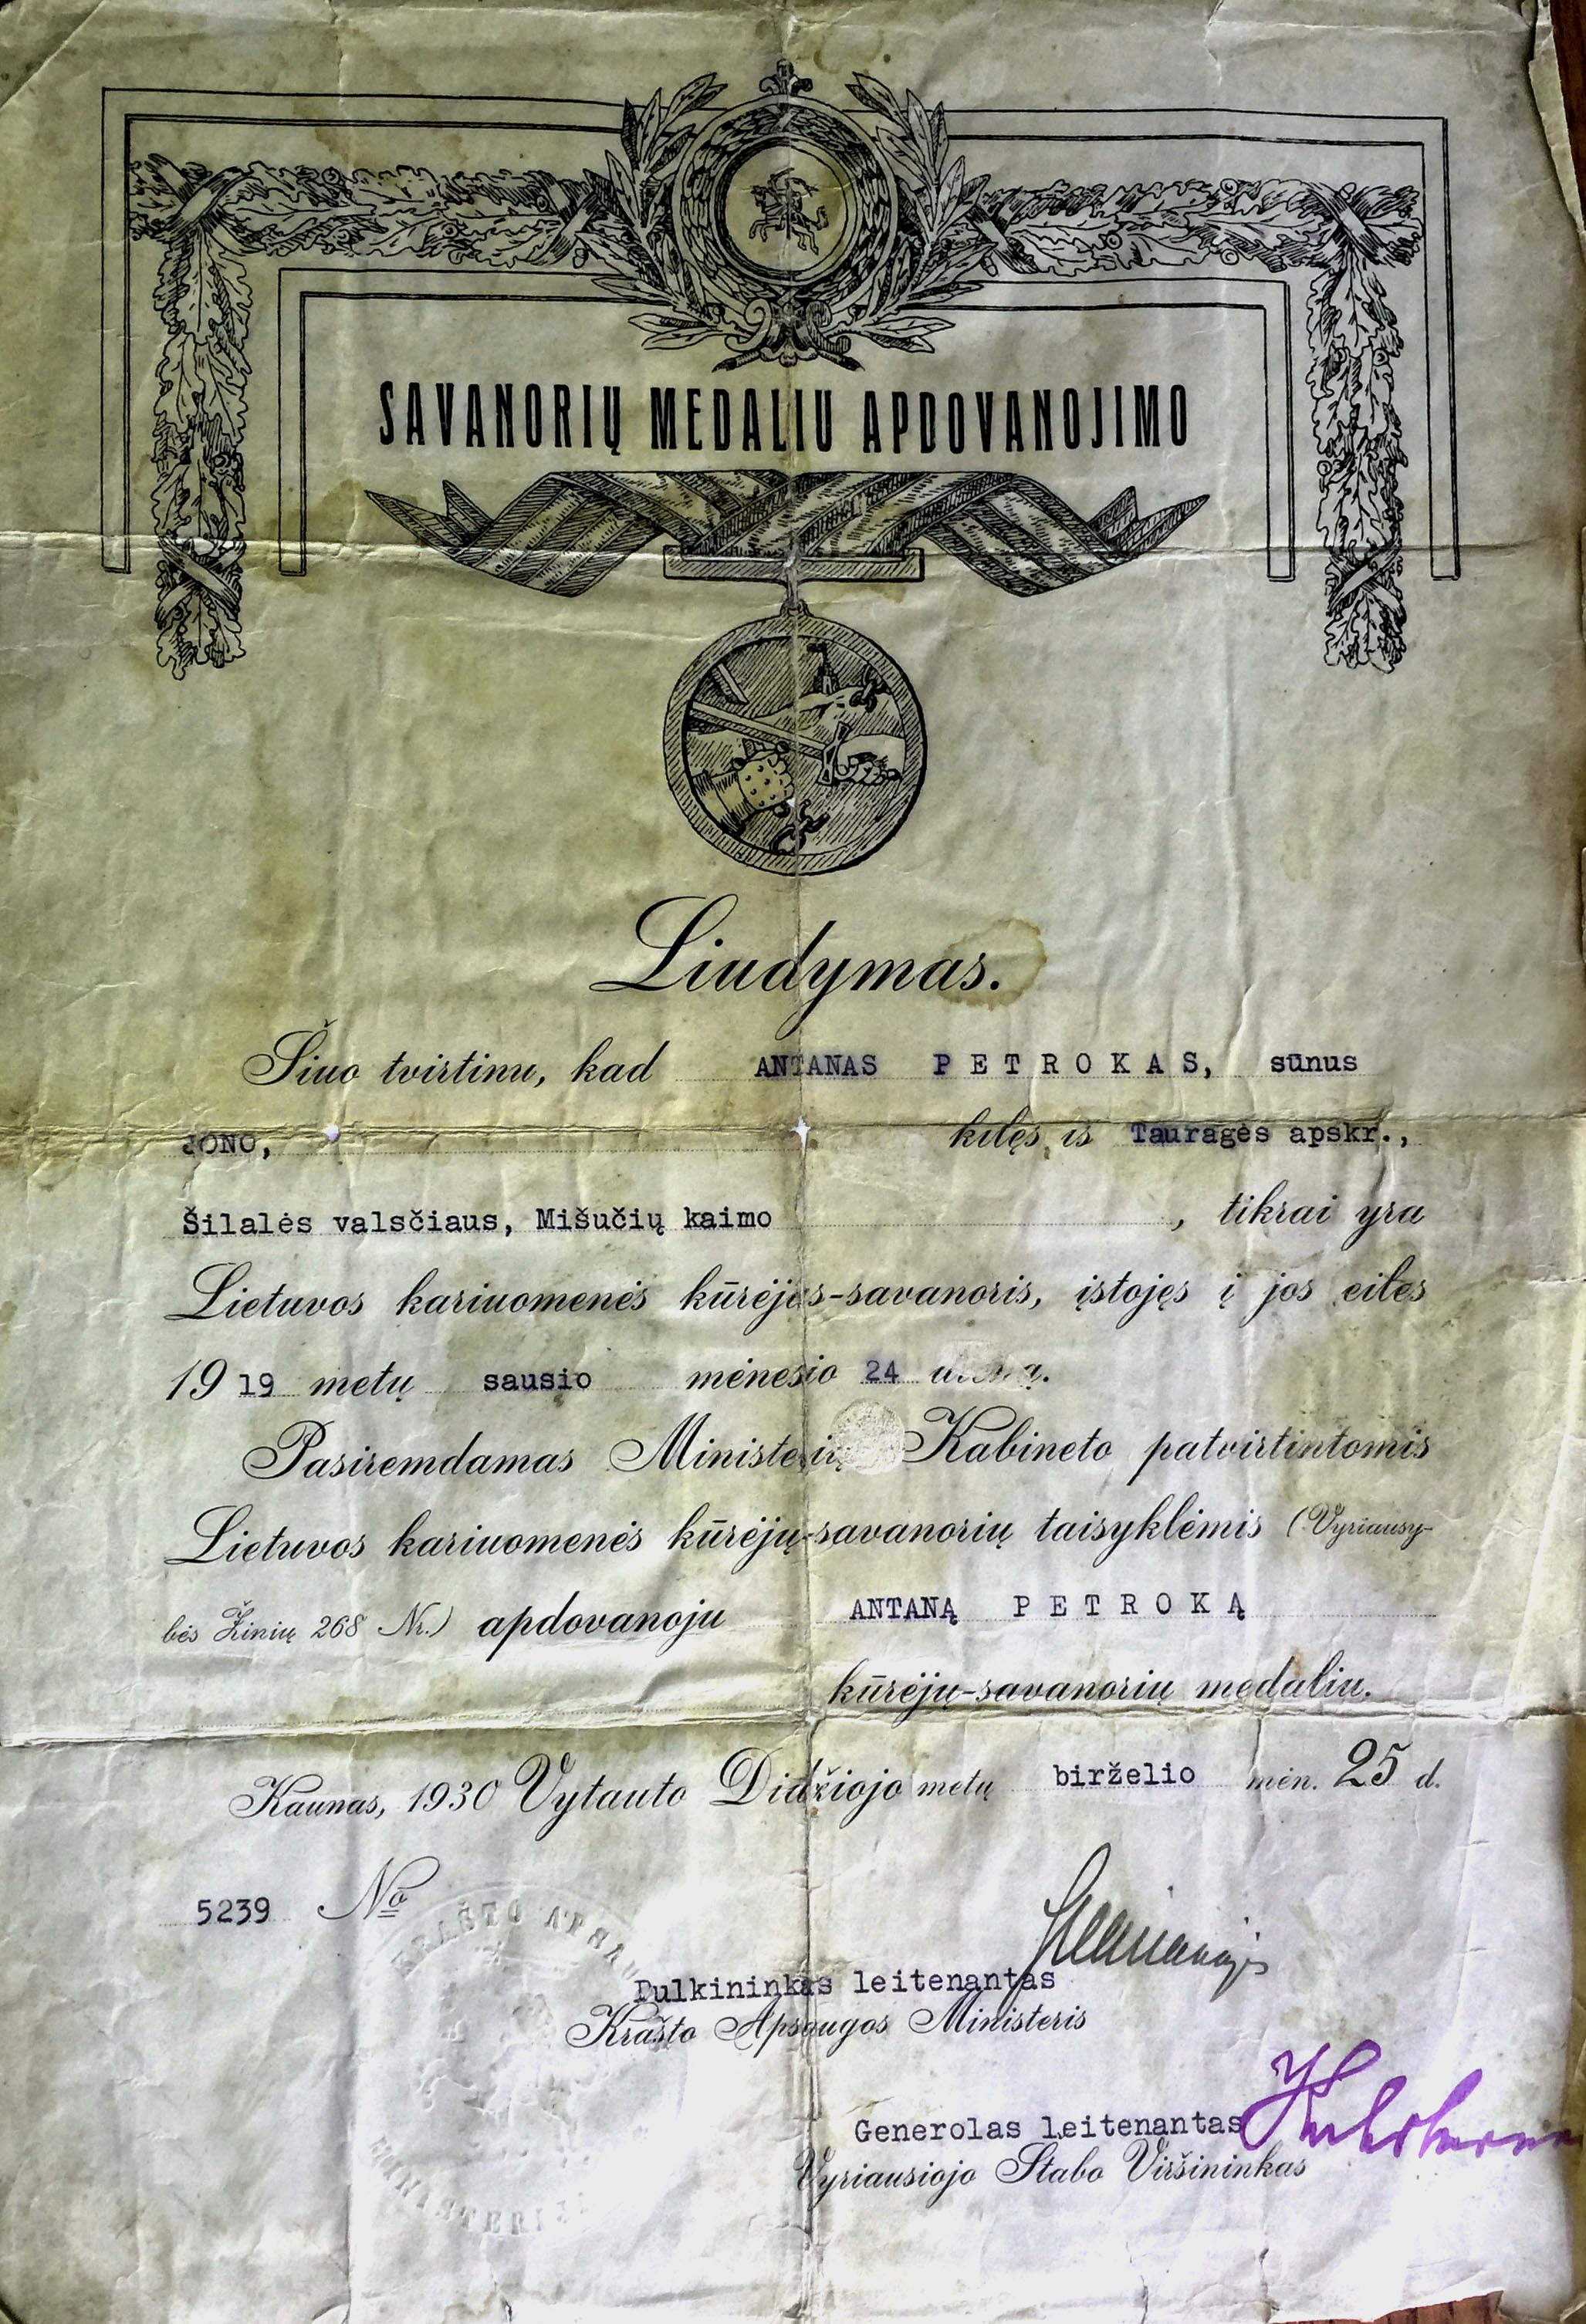 SAVANORIŲ MEDALIU APDOVANOJIMO
Liudymas.
Šiuo tvirtinu, kad ANTANAS PETROKAS, sūnus
JONO, kilęs iš Tauragės apskr.,
Šilalės valsčiaus, Mišučių kaimo , tikrai yra
Lietuvos kariuomenės kūrėjas-savanoris, įstojęs į jos eiles
1919 metų sausio mėnesio 24 dieną.
Pasiremdamas Ministerių Kabineto patvirtintomis
Lietuvos kariuomenės kūrėjų-savanorių taisyklėmis (Vyriausy-
bės Žinių 268 Nr.) apdovanoju ANTANĄ PETROKĄ
kūrėjų-savanorių medaliu.
Kaunas, 1930 Vytauto Didžiojo metų birželio mėn. 25 d.
5239 No
KRAŠTO APSAU
Pulkininkas leitenantas
Krašto Apsaugos Ministeris
Generolas leitenantas
Vyriausiojo Štabo Viršininkas
MINISTERI